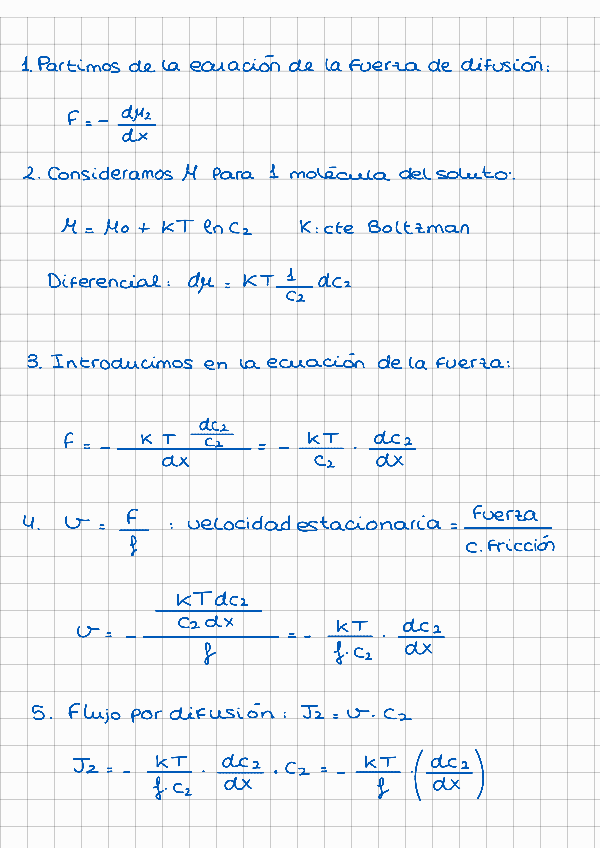 1. Partimos de la ecuación de la fuerza de difusión:
F = - dμ₂/dx
2. Consideramos μ para 1 molécula del soluto:
μ = μ₀ + KT ln C₂   K: cte Boltzman
Diferencial: dμ = KT 1/C₂ dC₂
3. Introducimos en la ecuación de la fuerza:
F = - (KT dC₂/C₂)/dx = - KT/C₂ · dC₂/dx
4. v = F/f : velocidad estacionaria = Fuerza/C. Fricción
v = - (KT dC₂/C₂ dx)/f = - KT/f·C₂ · dC₂/dx
5. Flujo por difusión: J₂ = v · C₂
J₂ = - KT/f·C₂ · dC₂/dx · C₂ = - KT/f · (dC₂/dx)